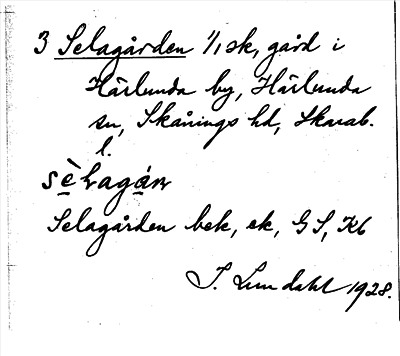 3 Selagården 1/1 sk, gård i
Härlunda by, Härlunda
sn, Skånings hd, Skarab.
l.
sèlagán
Selagården bek, ek, GS, Kb
I. Lundahl 1928.